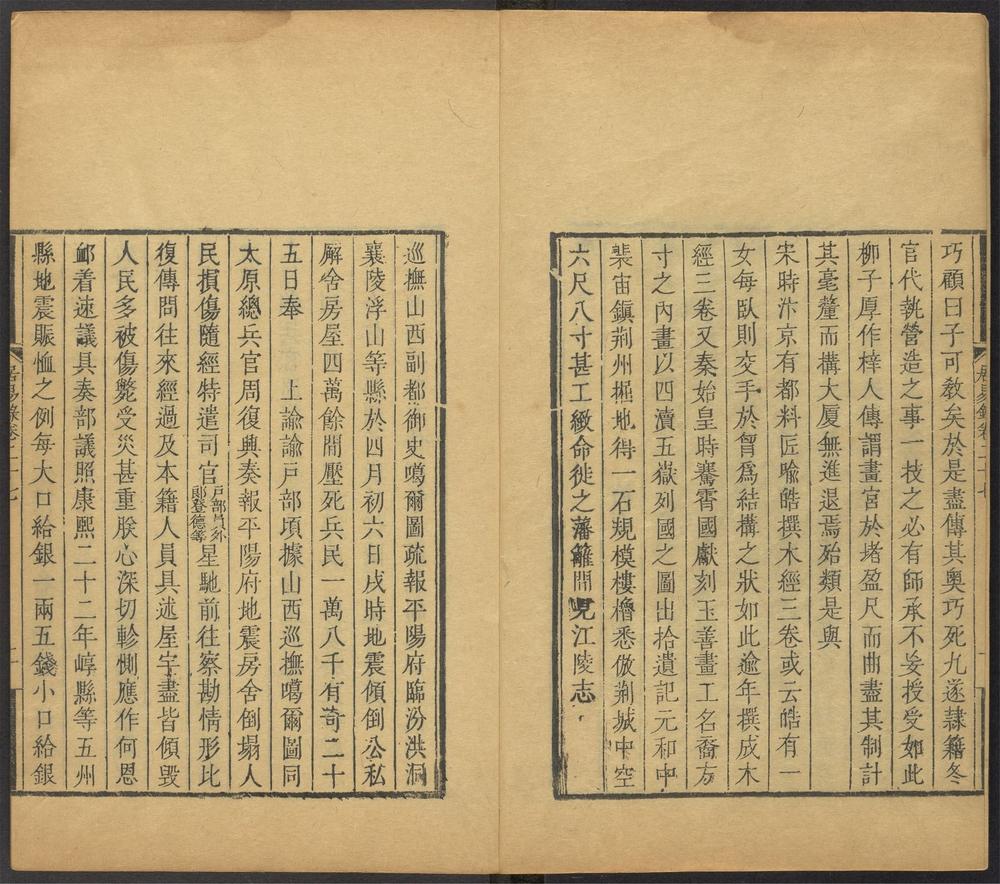 巧顧曰子可敎矣於是盡傳其奧巧死九遂隷籍冬
官代執營造之事一技之必有師承不妄授受如此
柳子厚作梓人傳謂畫宮於堵盈尺而曲盡其制計
其毫釐而構大厦無進退焉殆類是與
宋時汴京有都料匠喩皓撰木經三卷或云皓有一
女每臥則交手於胷爲結構之狀如此逾年撰成木
經三卷又秦始皇時騫霄國獻刻玉善畫工名裔方
寸之內畫以四瀆五嶽列國之圖出拾遺記元和中
裴宙鎭荆州掘地得一石規模樓櫓悉倣荆城中空
六尺八寸甚工緻命徙之藩籬間見江陵志
居易錄卷二十七
巡撫山西副都御史噶爾圖疏報平陽府臨汾洪洞
襄陵浮山等縣於四月初六日戌時地震傾倒公私
廨舍房屋四萬餘間壓死兵民一萬八千有奇二十
五日奉　上諭諭戸部頃據山西巡撫噶爾圖同
太原總兵官周復興奏報平陽府地震房舍倒塌人
民損傷隨經特遣司官戸部員外郞登德等星馳前往察勘情形比
復傳問往來經過及本籍人員具述屋宇盡皆傾毁
人民多被傷斃受災甚重朕心深切軫惻應作何恩
䘏着速議具奏部議照康熙二十二年崞縣等五州
縣地震賑恤之例每大口給銀一兩五錢小口給銀
居易錄卷二十七